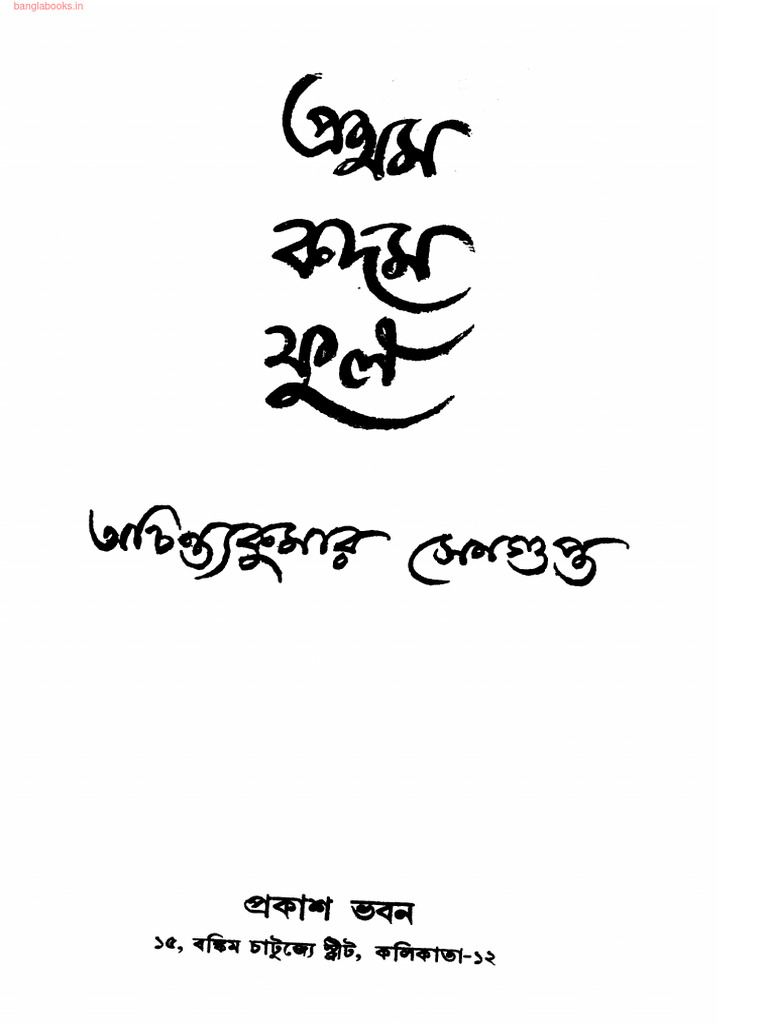 banglabooks.in
প্রথম
কদম
ফুল
অচিন্ত্যকুমার সেনগুপ্ত
প্রকাশ ভবন
১৫, বঙ্কিম চাটুজ্যে স্ট্রীট, কলিকাতা-১২